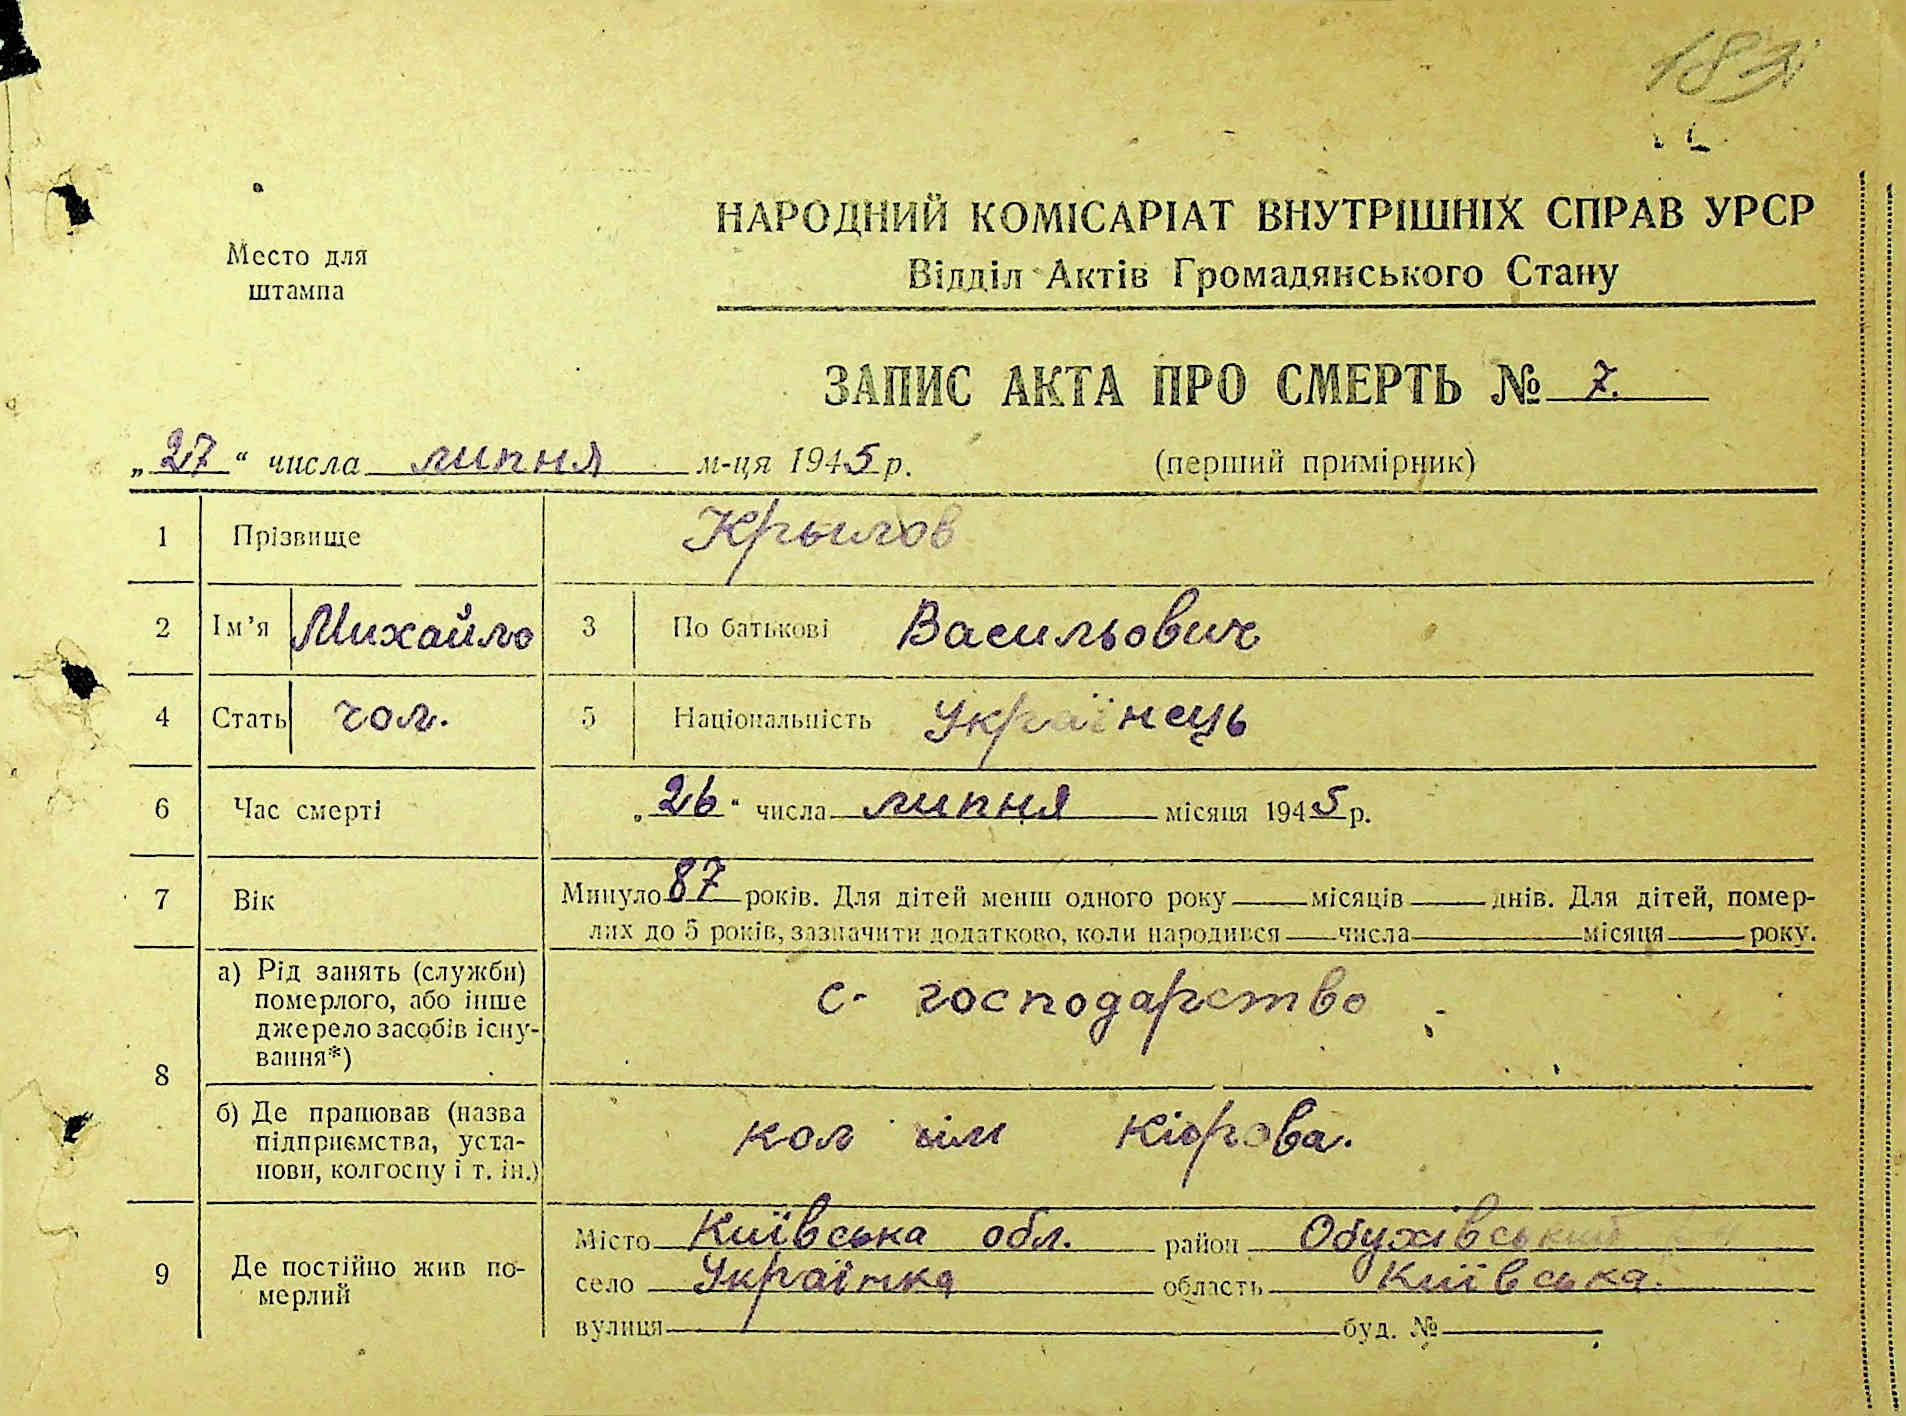 183
Место для
штампа
НАРОДНИЙ КОМІСАРІАТ ВНУТРІШНІХ СПРАВ УРСР
Відділ Актів Громадянського Стану
ЗАПИС АКТА ПРО СМЕРТЬ № 7.
„27“ числа липня м-ця 1945 р. (перший примірник)
1 Прізвище Крылов
2 Ім’я Михайло 3 По батькові Васильович
4 Стать чол. 5 Національність Українець
6 Час смерті „26“ числа липня місяця 1945 р.
7 Вік Минуло 87 років. Для дітей менш одного року місяців днів. Для дітей, помер-
лих до 5 років, зазначити додатково, коли народився числа місяця року.
8 а) Рід занять (служби)
померлого, або інше
джерело засобів існу-
вання*)
с- господарство
б) Де працював (назва
підприємства, уста-
нови, колгоспу і т. ін.)
кол ім Кірова.
9 Де постійно жив по-
мерлий
Місто Київська обл. район Обухівський
село Українка область Київська.
вулиця буд. №